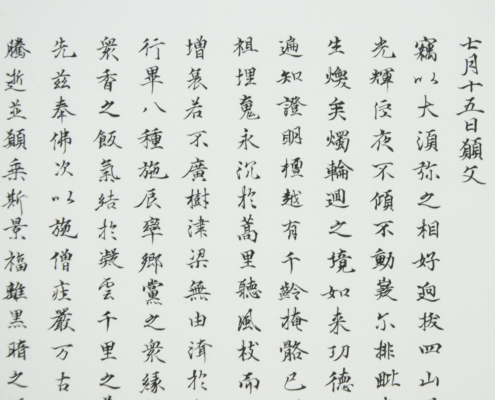 七月十五日願文
竊以大須弥之相好迥拔四山
光輝侄夜不傾不動嶷尓排毗
生燠矣燭輪迴之境如来功德
遍知證明檀越有千齡掩骼已
祖埋鬼永沉於蒿里聽風枝而
增哀若不廣樹津梁無由濟於
行畢八種施辰率鄉黨之衆緣
衆香之飯氣結於凝雲千里之
先茲奉佛次以施僧庄嚴万古
騰逝並願乗斯景福離黒暗之